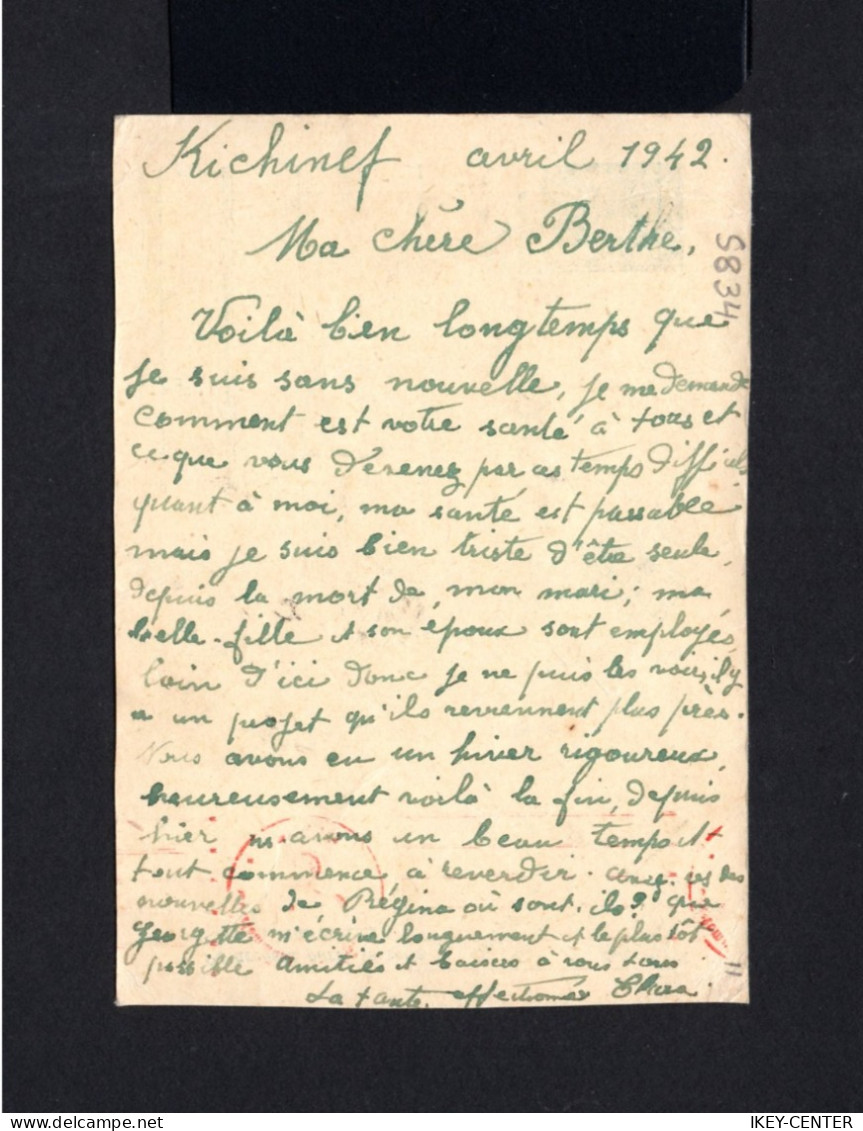 Kichinef avril 1942.
Ma chère Berthe,
5834
Voilà bien longtemps que
je suis sans nouvelle, je me demande
comment est votre santé à tous et
ce que vous devenez par ces temps difficils
quant à moi, ma santé est passable
mais je suis bien triste d'être seule,
depuis la mort de mon mari; ma
belle-fille et son époux sont employés
loin d'ici donc je ne puis les voir, il y
a un projet qu'ils reviennent plus près.
Nous avons eu un hiver rigoureux,
heureusement voilà la fin, depuis
hier ns avons un beau temps et
tout commence à reverdir. des
nouvelles de Régina où sont-ils? que
Georgette m'écrive longuement et le plus tôt
possible amitiés et baisers à vous tous
La tante affectionnée
11
IKEY-CENTER